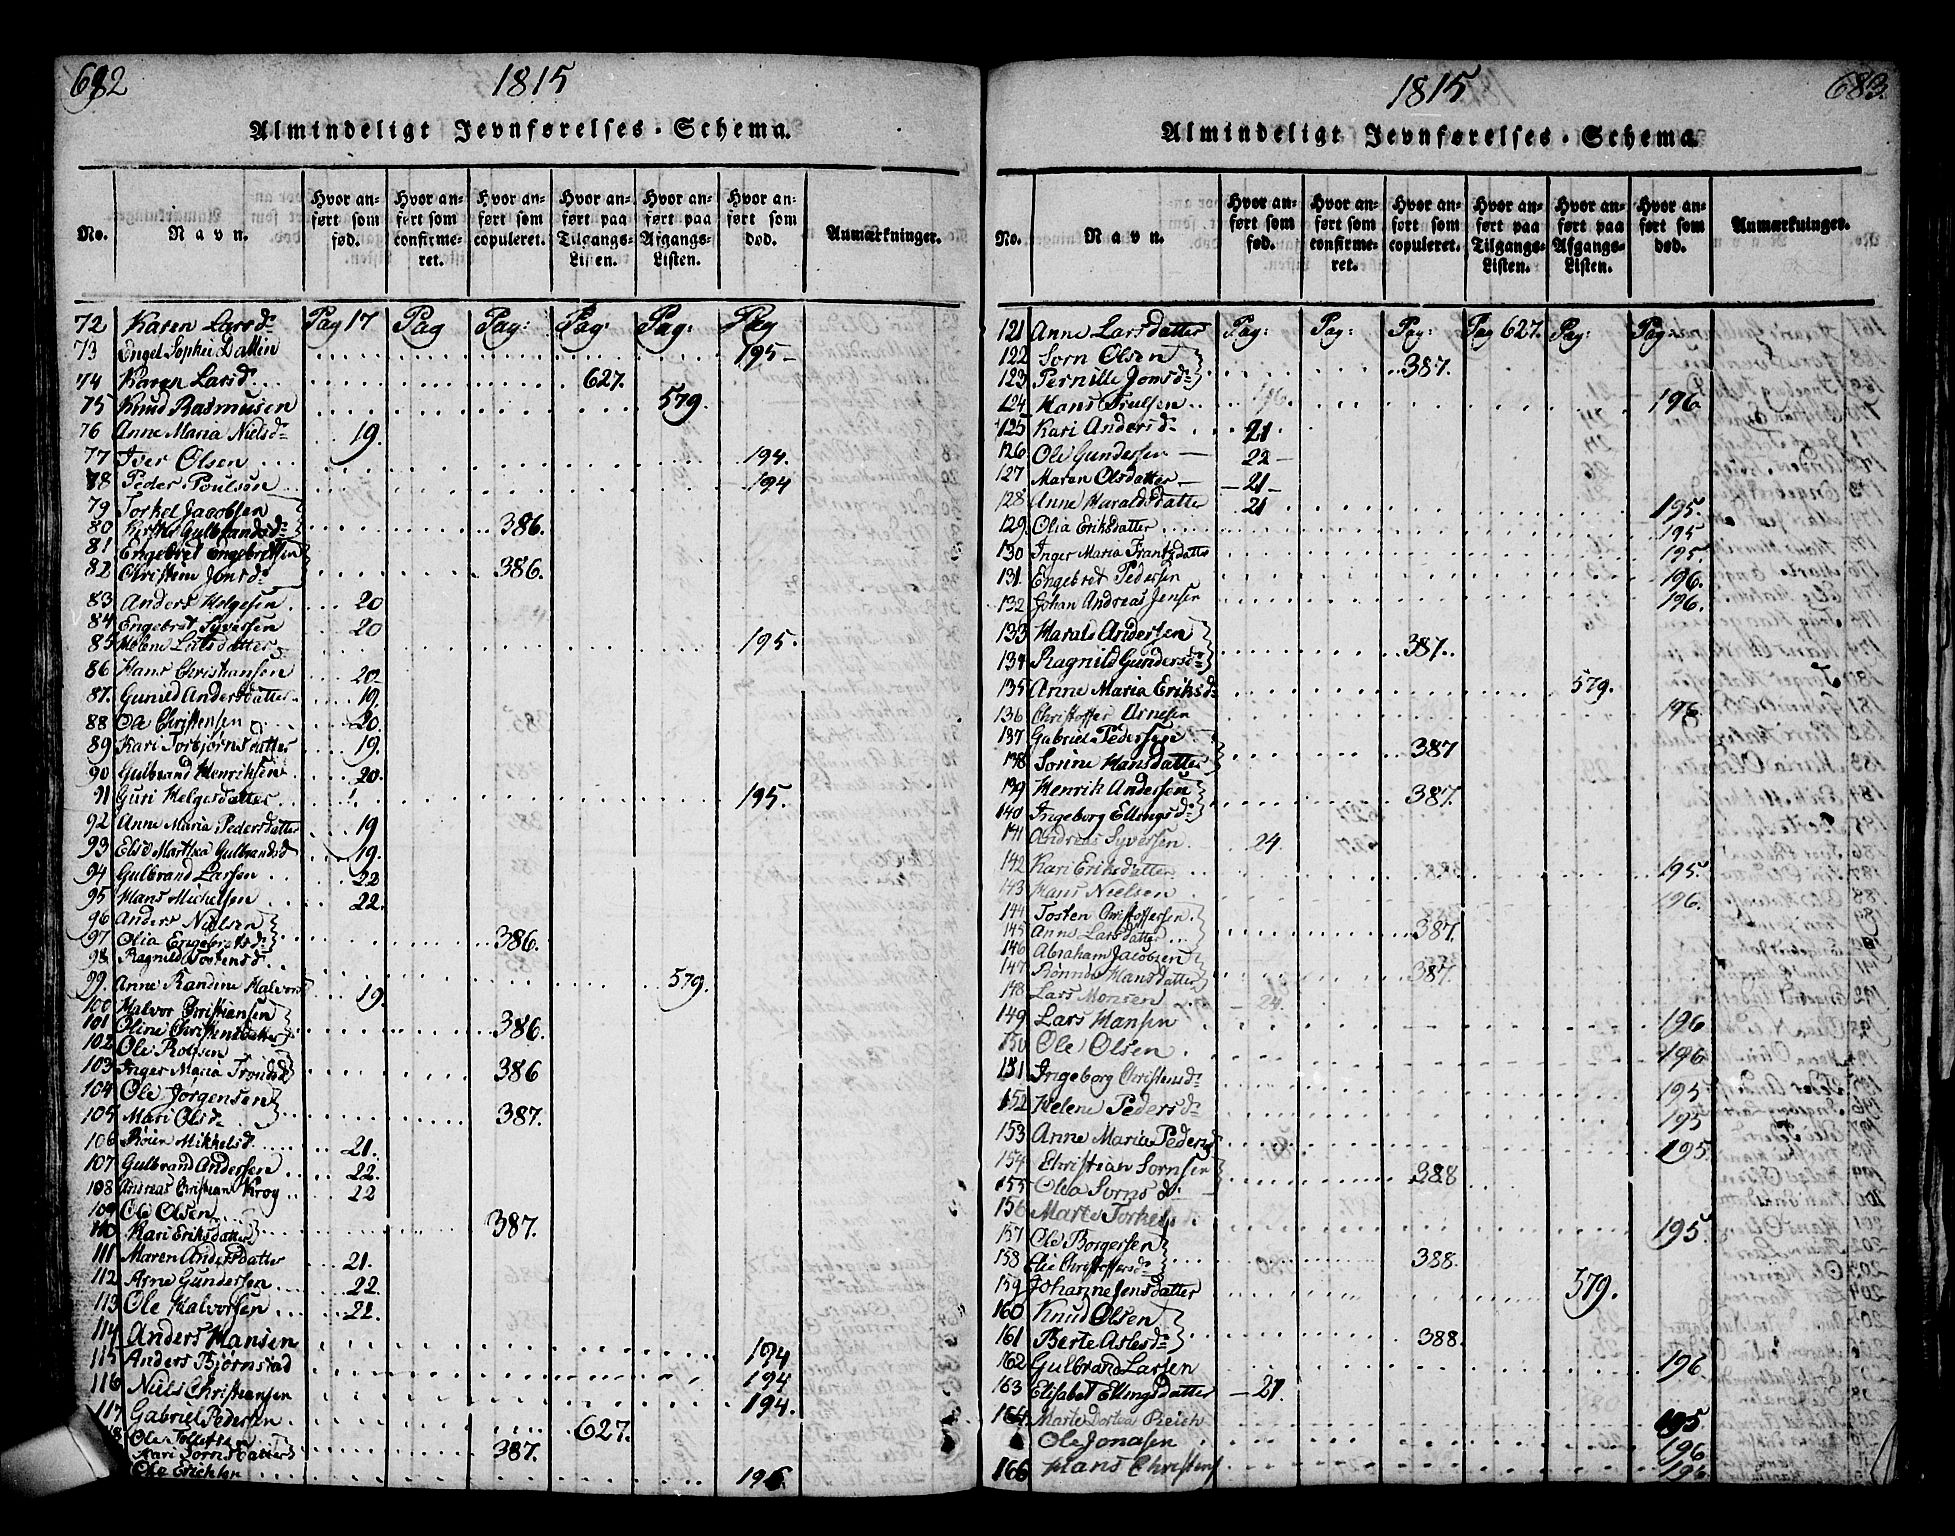 682
1815
Almindeligt Jevnførelses-Schema.
No. Navn. Hvor anført som fød. Hvor anført som confirmeret. Hvor anført som copuleret. Hvor anført paa Tilgangs-Listen. Hvor anført paa Afgangs-Listen. Hvor anført som død. Anmærkninger.
72 Karen Larsd. Pag 17 Pag Pag: Pag: Pag: Pag
73 Engel Sophie Dattin 195
74 Karen Larsd. 627.
75 Knud Rasmusen 579.
76 Anne Maria Nielsd. 19.
77 Iver Olsen 194.
78 Peder Poulsen 194
79 Torkel Jacobsen
80 Kirsti Gulbrandsd. 386.
81 Engebret Engebretsen
82 Christine Jonsd. 386.
83 Anders Helgesen 20
84 Engebret Syversen 20
85 Helene Larsdatter 195.
86 Hans Christiansen 22
87. Gunild Andersdatter 19.
88 Ole Christensen 20.
89 Kari Torbjørnsdatter 19.
90 Gulbrand Henriksen 20.
91 Guri Helgesdatter 195.
92 Anne Maria Pedersdatter 19
93 Else Marthea Gulbrandsd 19.
94 Gulbrand Larsen 22
95 Hans Michelsen 22.
96 Anders Nielsen
97 Olia Engebretsd. 386.
98 Ragnild Tostensd. 579.
99 Anne Randine Halvors 19.
100 Halvor Christiansen
101 Oline Christensdatter 386.
102 Ole Rolfsen
103 Inger Maria Trondsd 386
104 Ole Jørgensen
105 Mari Olsd. 387.
106 Røien Mikkelsd. 21.
107 Gulbrand Andersen 22.
108 Andreas Christian Krog 22
109 Ole Olsen
110 Kari Eriksdatter 387.
111 Maren Andersdatter 21.
112 Arne Gundersen 22.
113 Ole Halvorsen 22.
114 Anders Hansen 194
115 Anders Bjørnstad 194
116 Niels Christiansen 194.
117 Gabriel Pedersen 627.
118 Ole Tollefsen
Kari Sørnsdatter 387.
Ole Erichsen 196
683.
1815
Almindeligt Jevnførelses-Schema
No. Navn. Hvor anført som fød. Hvor anført som confirmeret. Hvor anført som copuleret. Hvor anført paa Tilgangs-Listen. Hvor anført paa Afgangs-Listen. Hvor anført som død. Anmærkninger.
121 Anne Larsdatter Pag: Pag: Pag: Pag 627. Pag: Pag:
122 Sørn Olsen
123 Pernille Jonsd. 387.
124 Hans Trulsen 196
125 Kari Andersd. 21
126 Ole Gundersen 22
127 Maren Olsdatter 21
128 Anne Haraldsdatter 21 195.
129 Olia Eriksdatter 195
130 Inger Maria Frantzdatter 195.
131. Engebret Pedersen 196.
132 Johan Andreas Jensen 196.
133 Harald Andersen
134 Ragnild Gundersd. 387.
135 Anne Maria Eriksd. 579.
136 Christoffer Arnesen 196
137 Gabriel Pedersen
138 Sørine Hansdatter 387
139 Henrik Andersen
140 Ingeborg Ellingsd. 387.
141 Andreas Syversen 24.
142 Kari Eriksdatter 195.
143 Hans Nielsen 196.
144 Tosten Christoffersen
145 Anne Larsdatter 387.
146 Abraham Jacobsen
147 Rønnde Hansdatter 387.
148 Lars Monsen 24.
149 Lars Hansen 196
150 Ole Olsen 196
151 Ingeborg Christensd. 195
152 Helene Pedersd. 195
153 Anne Maria Peders 195
154 Christian Sørnsen
155 Olea Sørnsd. 388
156 Marte Torkels 195.
157 Ole Borgersen
158 Elie Christoffersd. 388.
159 Johanne Jensdatter 579.
160 Knud Olsen
161 Berte Aslesd. 388.
162 Gulbrand Larsen 196
163 Elisabet Ellingsdatter 21
164 Marte Dortea Reich 195
Ole Jonasen 196
166 Hans Christens 196